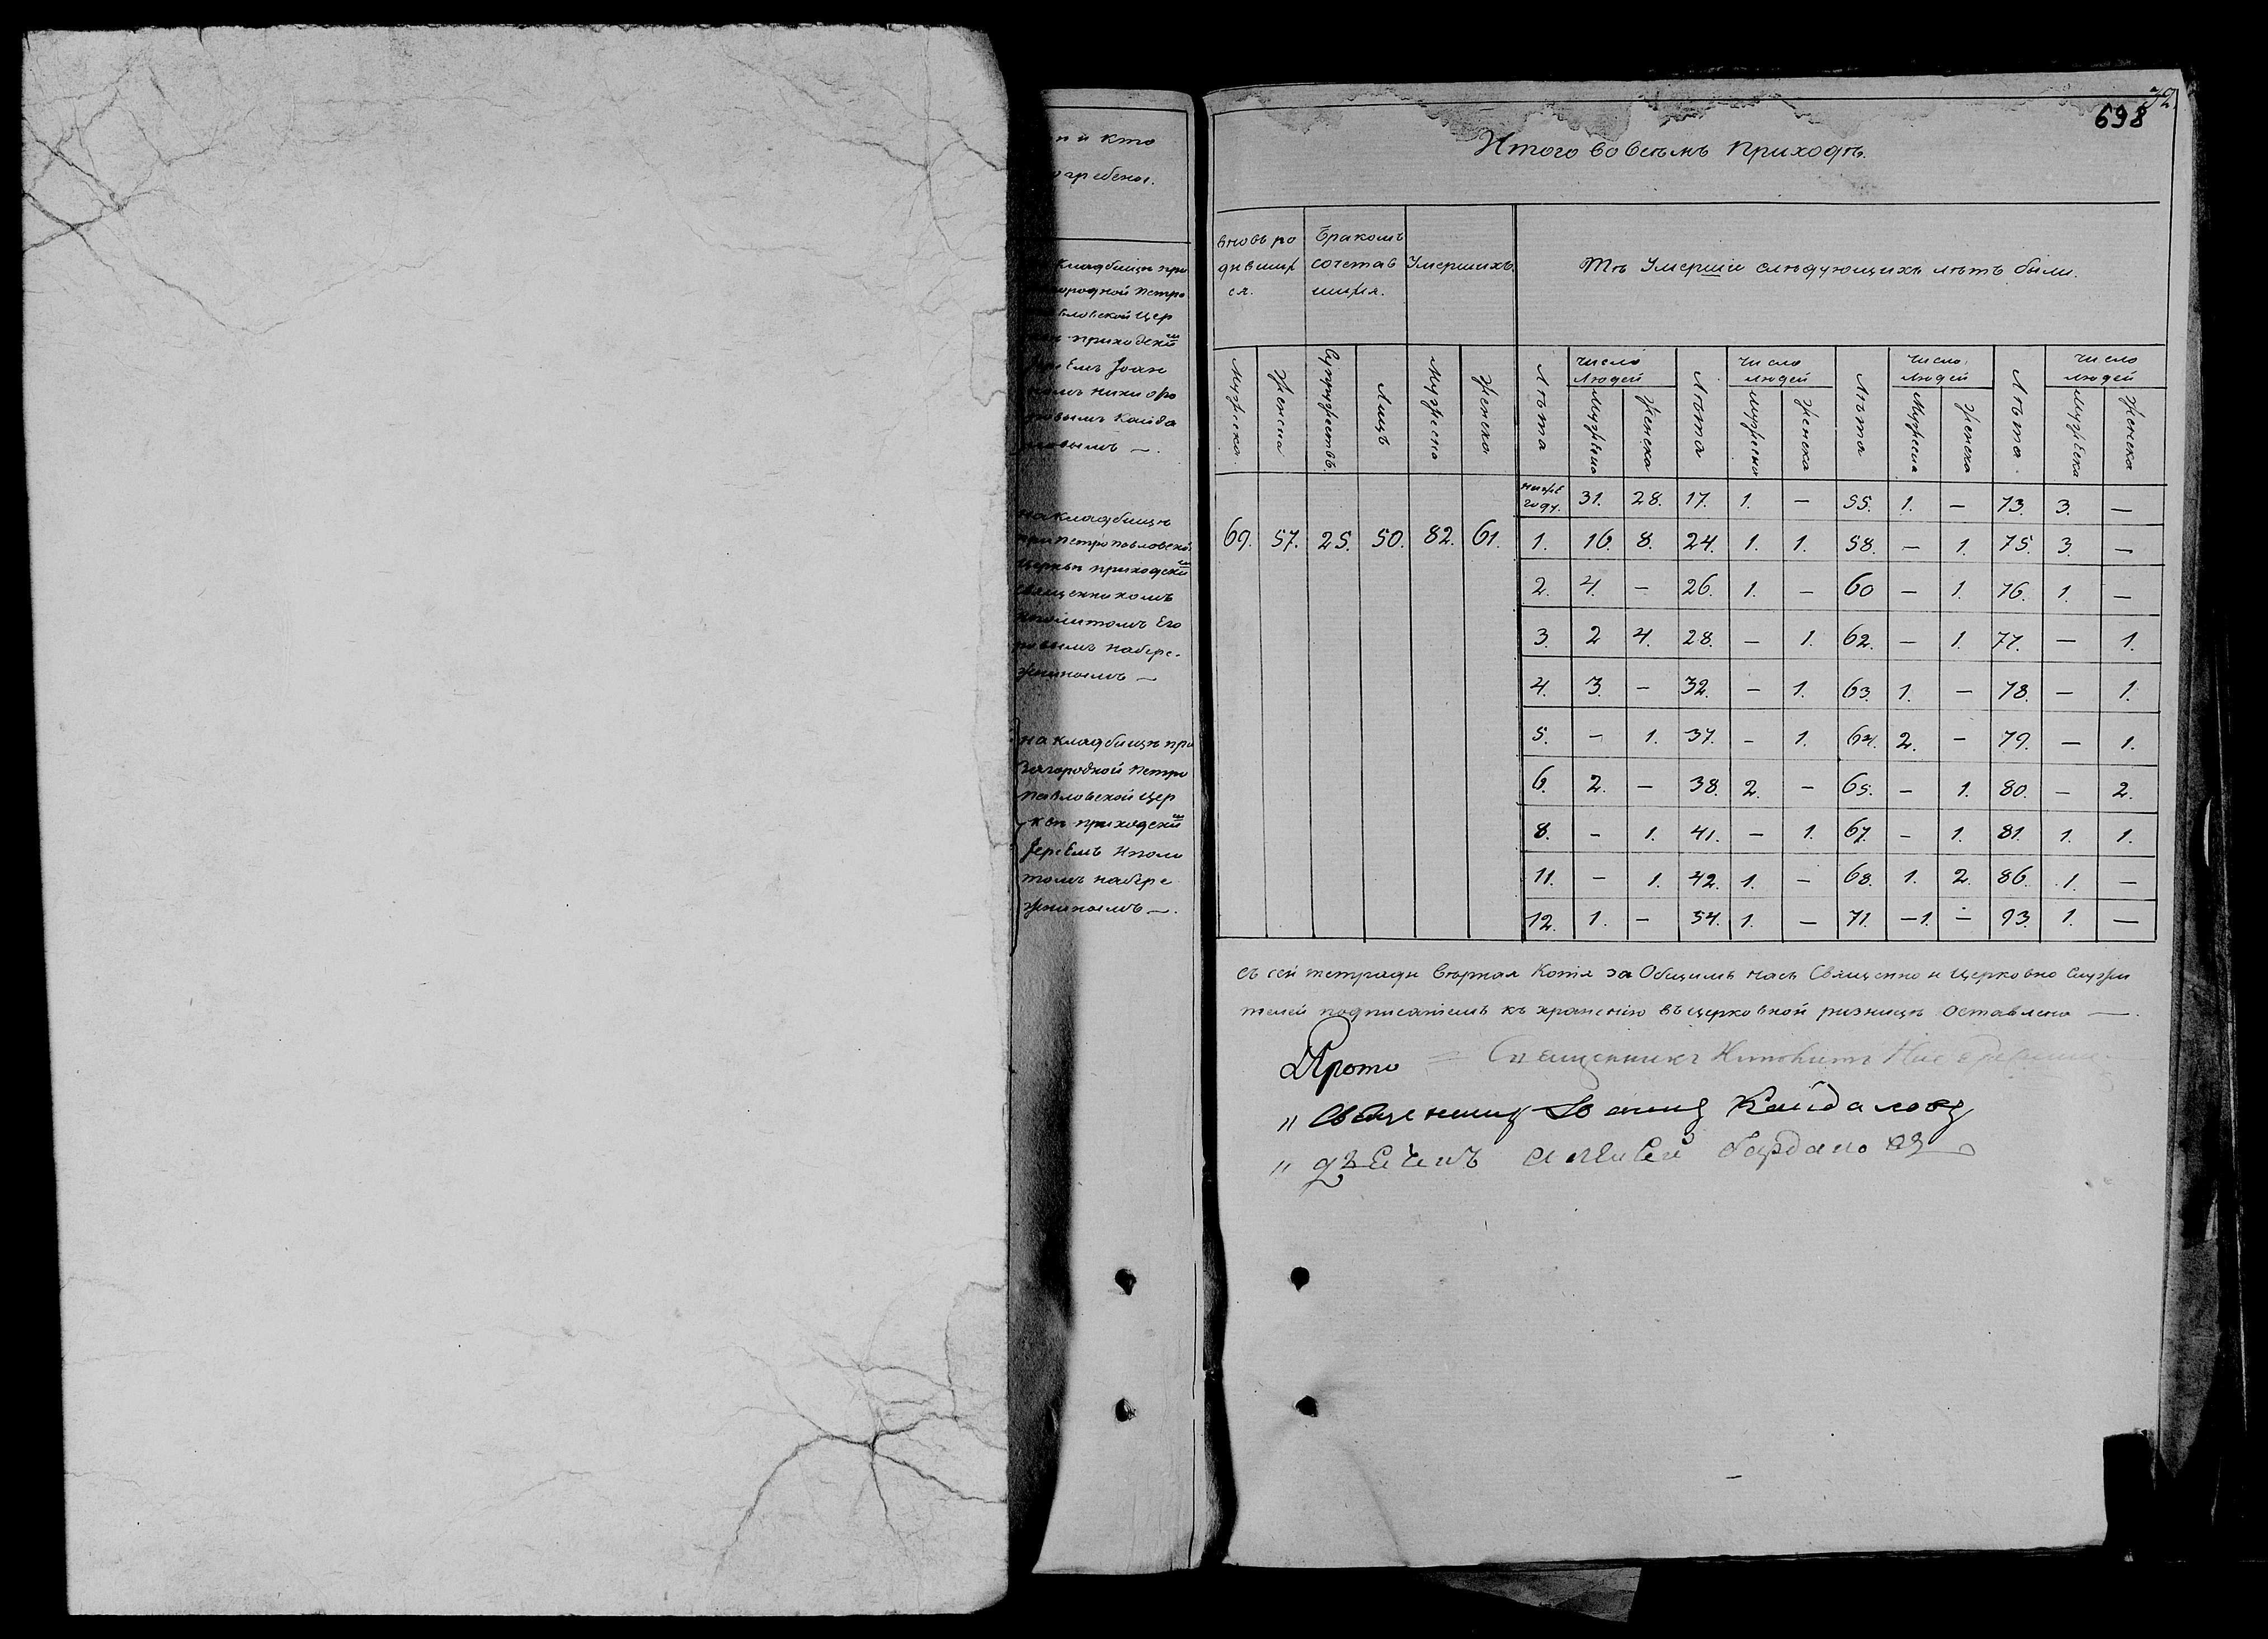 п и кто
огребенъ.
кладбищѣ при
городной Петро
вловской Цер
приходскій
Іереемъ Іоан
номъ Никифо
ровымъ Кайда
ловымъ —.
на кладбищѣ
при Петропавловской
Церкви приходскій
Священникомъ
Иполитомъ Его
ровымъ Набере-
жнинымъ —
на кладбищѣ при
Загородной Петро
Павловской Цер
кви приходскій
Іереемъ Иполи
томъ Набере
жнинымъ —.
72.
698
Итого во всемъ приходѣ.
вновь ро
дивших
ся.
Бракомъ
сочетав
шихся.
Умершихъ.
Тѣ Умершіе слѣдующихъ лѣтъ были.
Мужеска. Женска Супружествъ. Лицъ Мужеска Женска Лѣта Число Людей Мужеска Женска Лѣта Число людей Мужеска Женска Лѣта Число людей Мужеска Женска Лѣта. Число людей Мужеска Женска
ниже году. 31. 28. 17. 1. — 55. 1. — 73. 3. —
69. 57. 25. 50. 82. 61. 1. 16. 8. 24. 1. 1. 58. — 1. 75. 3. —
2. 4. — 26. 1. — 60 — 1. 76. 1. —
3. 2 4. 28. — 1. 62. — 1. 77. — 1.
4. 3. — 32. — 1. 63. 1. — 78. — 1.
5. — 1. 37. — 1. 64. 2. — 79. — 1.
6. 2. — 38. 2. — 65. — 1. 80. — 2.
8. — 1. 41. — 1. 67. — 1. 81. 1. 1.
11. — 1. 42. 1. — 68. 1. 2. 86. 1. —
12. 1. — 54. 1. — 71. —1. — 93. 1. —
съ сей тетради вѣрная Копія за Общимъ насъ Священно и Церковно Служи
телей подписаніемъ къ храненію въ церковной ризницѣ оставлена —.
Прото = Священникъ Иполитъ
„ Священникъ Іоаннъ Кайдаловъ
„ дьячекъ Алексей